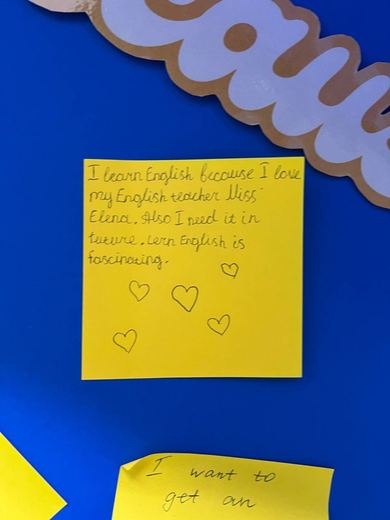 cau
I learn English because I love
my English teacher Miss
Elena. Also I need it in
future. Lern English is
fascinating.
I want to
get an